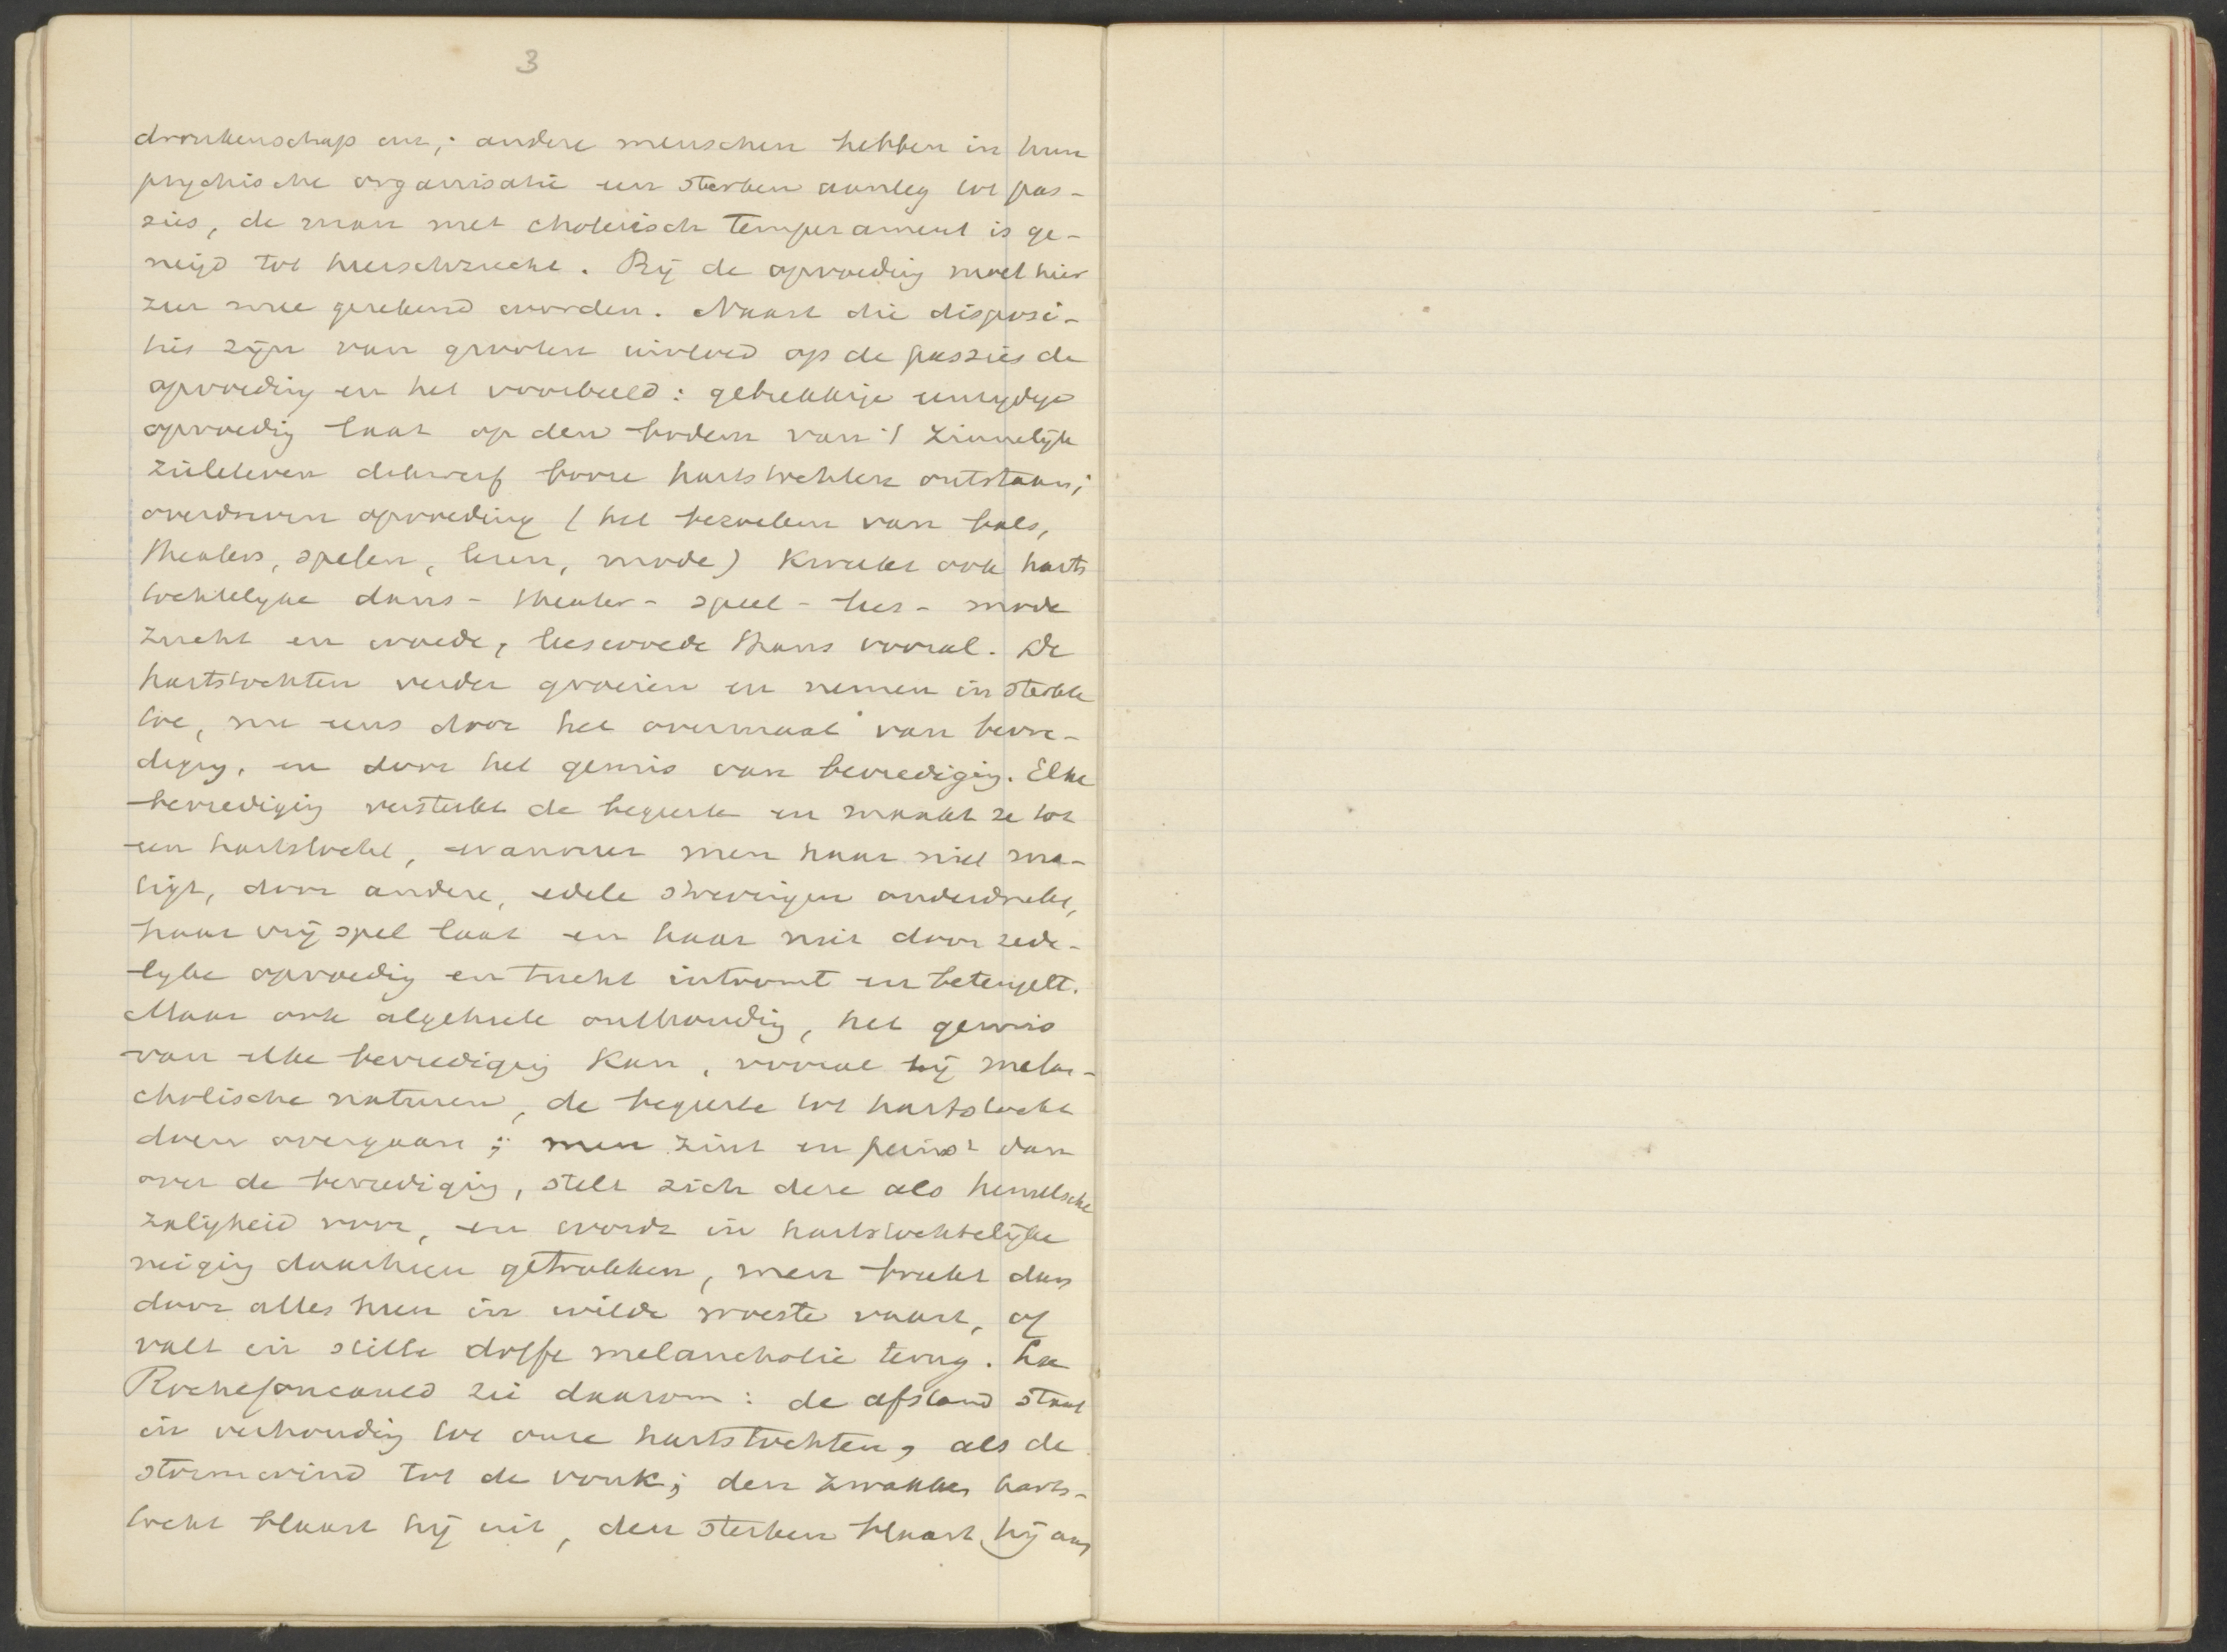 3
dronkenschap enz; andere menschen hebben in hun
psychische organisatie een sterken aanleg tot pas-
sies, de man met cholerisch temperament is ge-
neigd tot heerschzucht. Bij de opvoeding moet hier
zeer mee gerekend worden. Naast die disposi-
ties zijn van grooten invloed op de passies de
opvoeding en het voorbeeld: gebrekkige eenzydige
opvoeding laat op den bodem van 't zinnelijk
zieleleven dikwerf booze hartstochten ontstaan;
overdreven opvoeding (het bezoeken van bals,
theaters, spelen, lezen, mode) kweekt ook harts
tochtelyke dans- theater- speel- lees- mode
zucht en woede, leeswoede thans vooral. De
hartstochten verder groeien en nemen in sterkte
toe, nu eens door het overmaat van bevre-
diging, en door het gemis van bevrediging. Elke
bevrediging versterkt de begeerte en maakt ze tot
een hartstocht, wanneer men haar niet ma-
tigt, door andere, edele strevingen onderdrukt,
haar vrij spel laat en haar niet door zede-
lyke opvoeding en tucht intoomt en beteugelt.
Maar ook algeheele onthouding, het gemis
van elke bevrediging kan, vooral bij melan-
cholische naturen, de begeerte tot hartstocht
doen overgaan; men zint en peinst dan
over de bevrediging, stelt zich deze als hemelsche
zaligheid voor, en wordt in hartstochtelijke
neiging daarheen getrokken, men breekt dan
door alles heen in wilde woeste vaart, of
valt in stille doffe melancholie terug. La
Rochefoucauld zei daarom: de afstand staat
in verhouding tot onze hartstochten, als de
stormwind tot de vonk; den zwakken harts-
tocht blaast hij uit, den sterken blaast hij aan